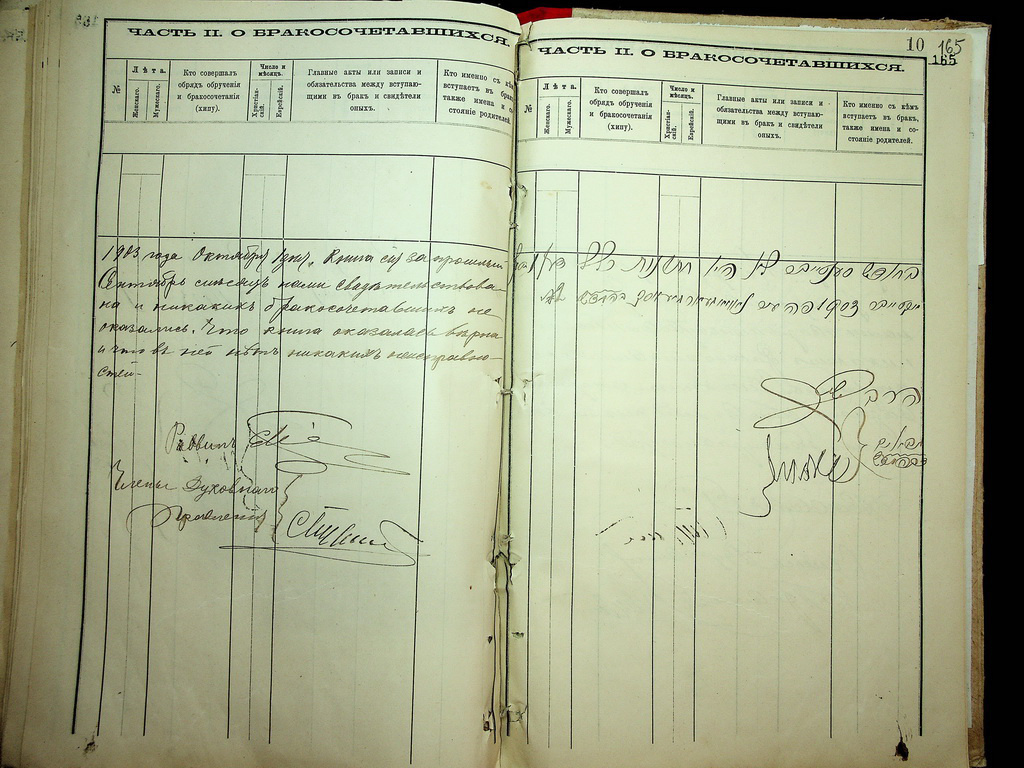 ЧАСТЬ II. О БРАКОСОЧЕТАВШИХСЯ.
№
Лѣта.
Женскаго.
Мужескаго.
Кто совершалъ
обрядъ обрученія
и бракосочетанія
(хипу).
Число и
мѣсяцъ.
Христіан-
скій.
Еврейскій.
Главные акты или записи и
обязательства между вступаю-
щими въ бракъ и свидѣтели
оныхъ.
Кто именно съ кѣмъ
вступаетъ въ бракъ,
также имена и со-
стояніе родителей.
1903 года Октября 1 дня. Книга сія за прошлый
Сентябрь мѣсяцъ нами свидѣтельствова-
на и никакихъ бракосочетавшихъ не
оказались. Что книга оказалась вѣрна
и что въ ней нѣтъ никакихъ неисправно-
стей-
Раввинъ
Члены Духовнаго
Правленія
10
165
165
ЧАСТЬ II. О БРАКОСОЧЕТАВШИХСЯ.
№
Лѣта.
Женскаго.
Мужескаго.
Кто совершалъ
обрядъ обрученія
и бракосочетанія
(хипу).
Число и
мѣсяцъ.
Христіан-
скій.
Еврейскій.
Главные акты или записи и
обязательства между вступаю-
щими въ бракъ и свидѣтели
оныхъ.
Кто именно съ кѣмъ
вступаетъ въ бракъ,
также имена и со-
стояніе родителей.
בחודש לא היו חתונות כלל
הרב